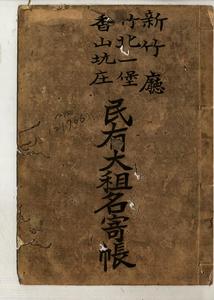 新竹廳
竹北一堡
香山坑庄
民有大租名寄帳